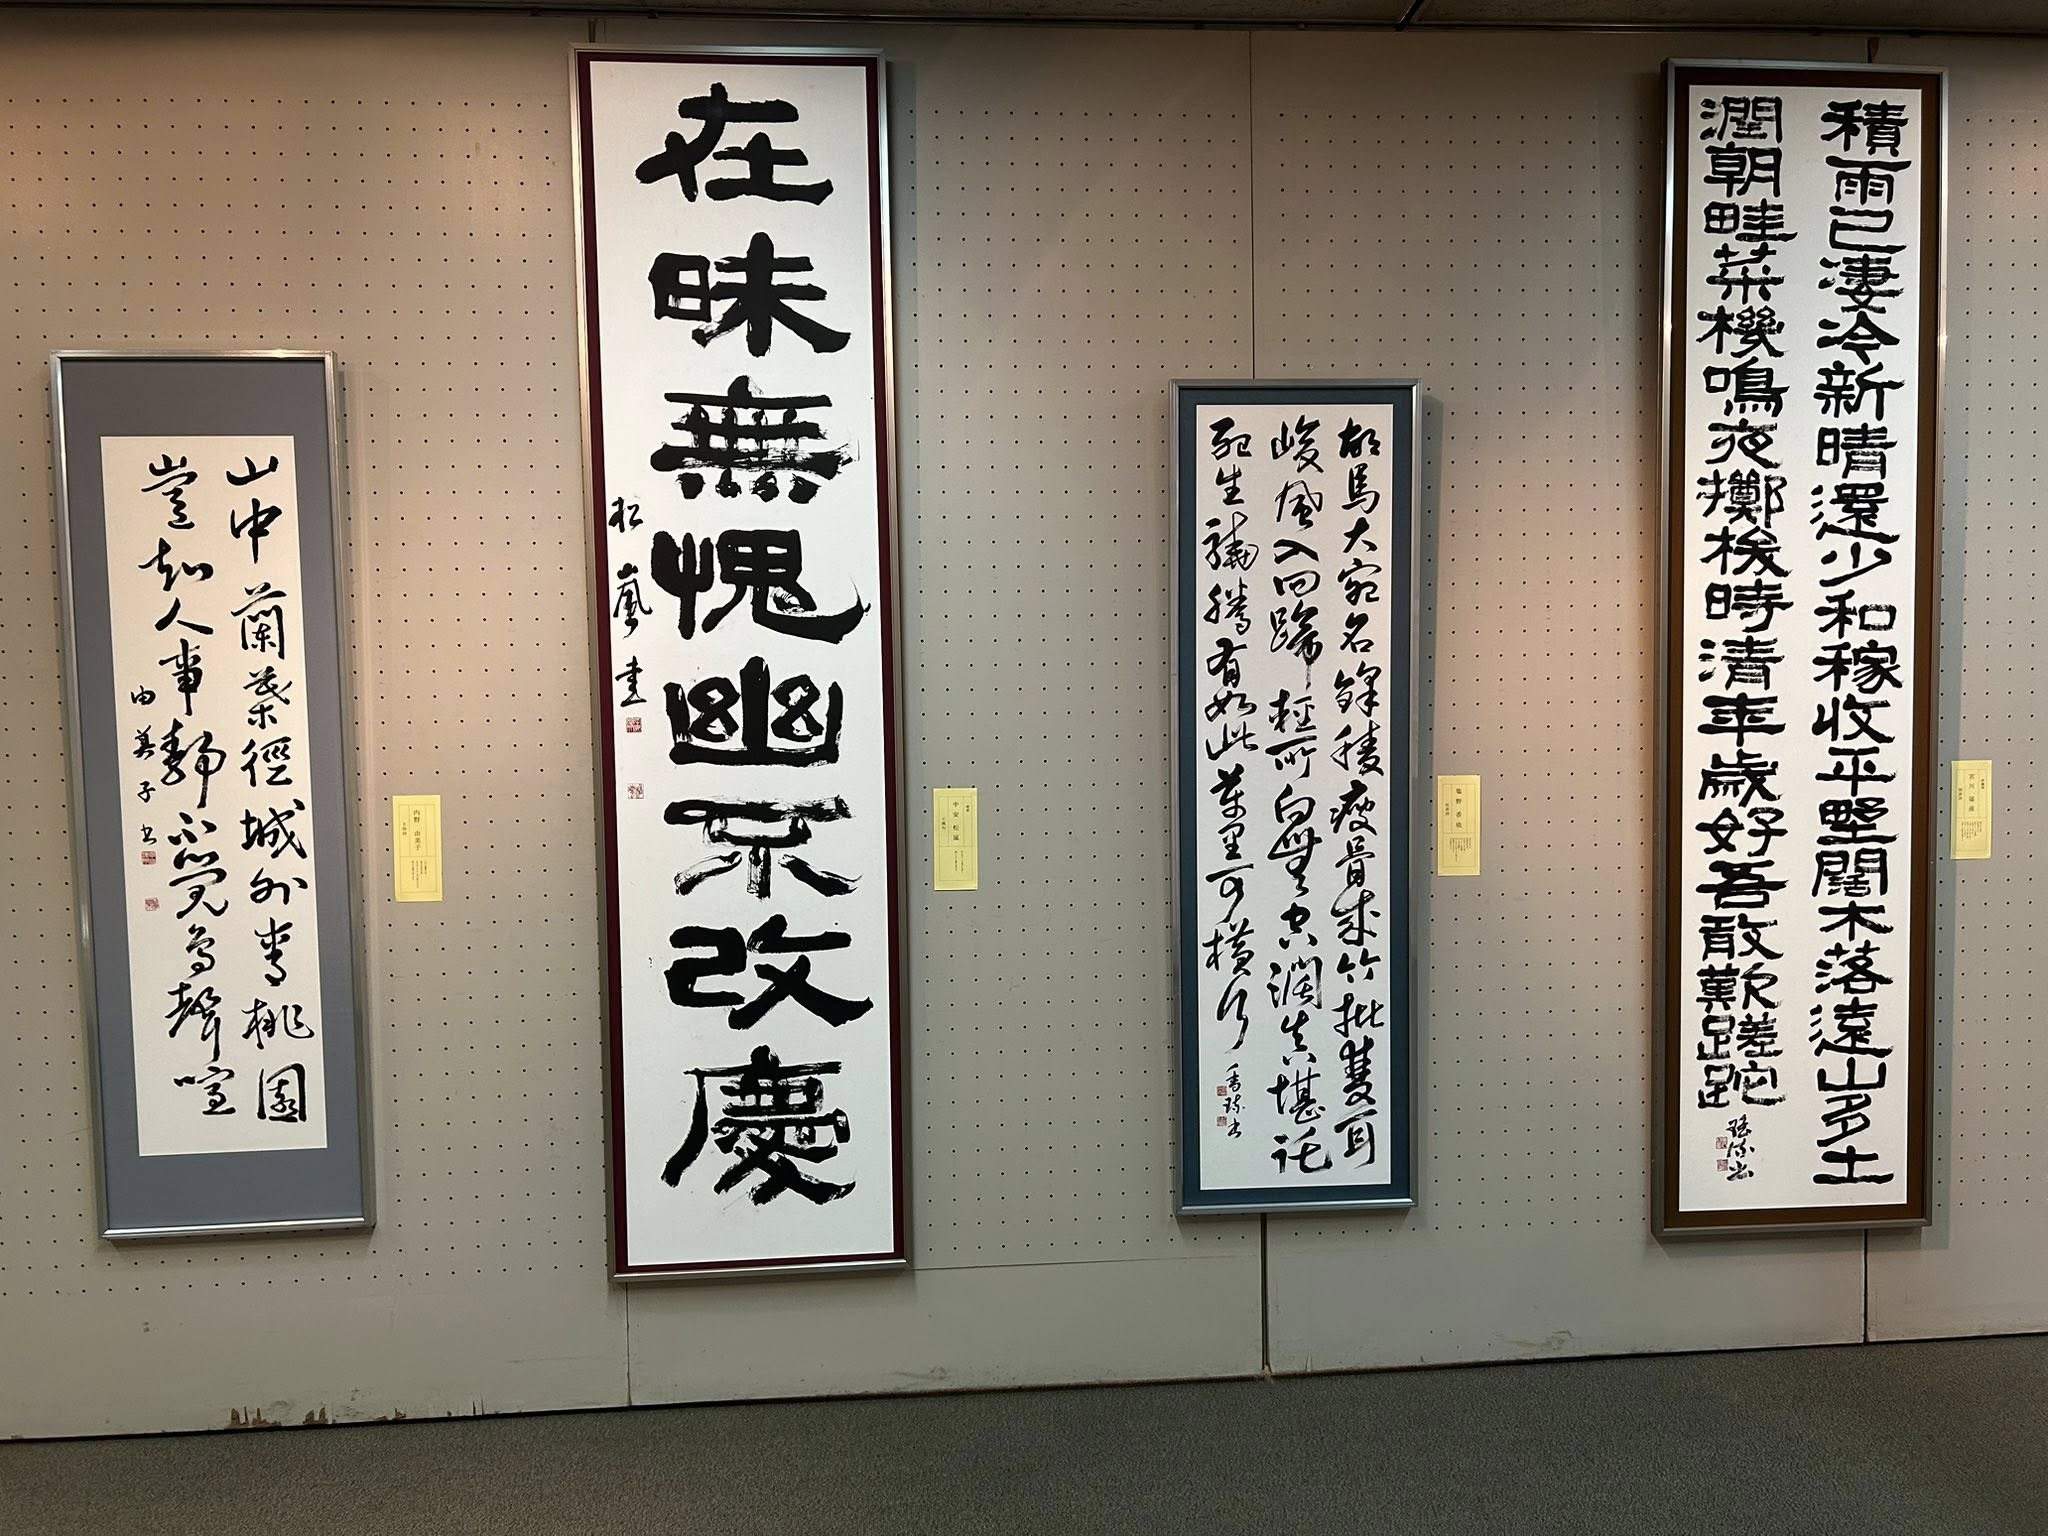 積雨已凄冷新晴還少和稼收平墅闊木落遠山多土
潤朝畦菜機鳴夜擲梭時清年歲好吾敢歎蹉跎
瑤流書
宮川 瑤流
胡馬大宛名鋒稜瘦骨成竹批雙耳
峻風入四蹄輕所向無空闊真堪託
死生驍騰有如此萬里可橫行
塩野
在昧無愧幽不改慶
松嵐書
中安 松嵐
山中蘭葉徑城外李桃園
豈知人事靜不覺鳥聲喧
由美子書
内野 由美子